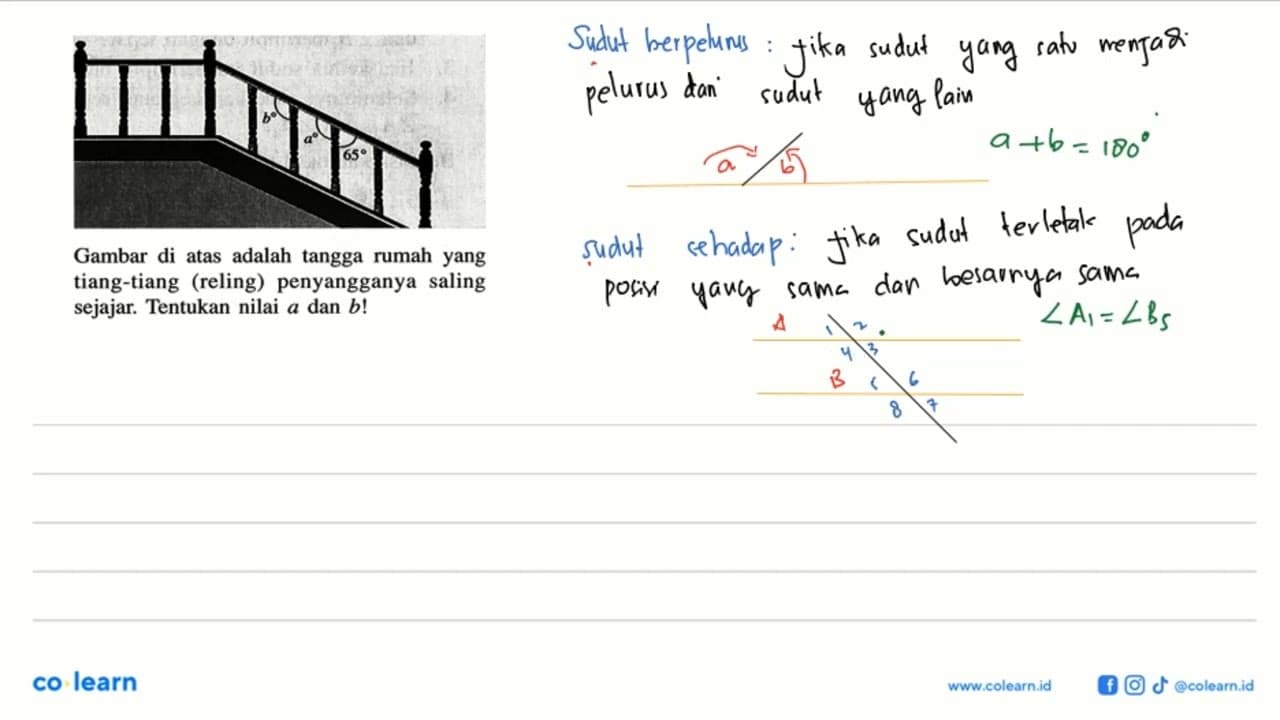 b°
a°
65°
Gambar di atas adalah tangga rumah yang
tiang-tiang (reling) penyangganya saling
sejajar. Tentukan nilai a dan b!
Sudut berpelurus : jika sudut yang satu menjadi
pelurus dari sudut yang lain
a b
a + b = 180°
sudut sehadap : jika sudut terletak pada
posisi yang sama dan besarnya sama
∠A₁ = ∠B₅
A 1 2
4 3
B 6
8 7
co learn
www.colearn.id
@colearn.id